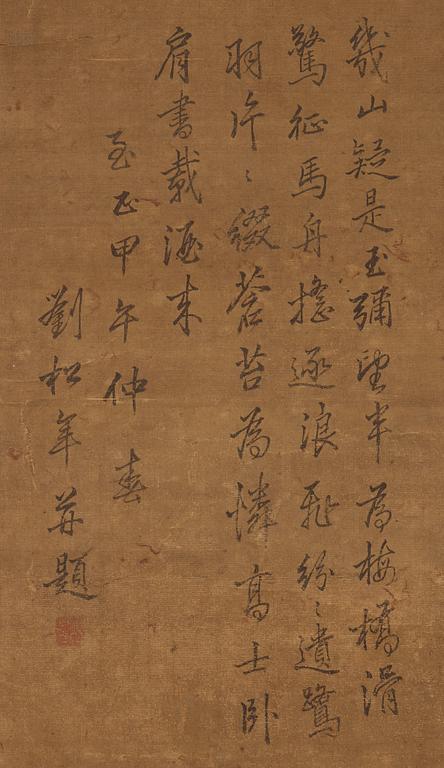 幾山疑是玉彌望半為梅橋滑
驚征馬舟搖逐浪飛紛〻遺鷺
羽片〻綴蒼苔為憐高士臥
肩書載酒來
至正甲午仲春
劉松年并題